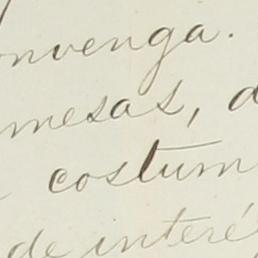 onvenga.
mesas, d
costum
de interé